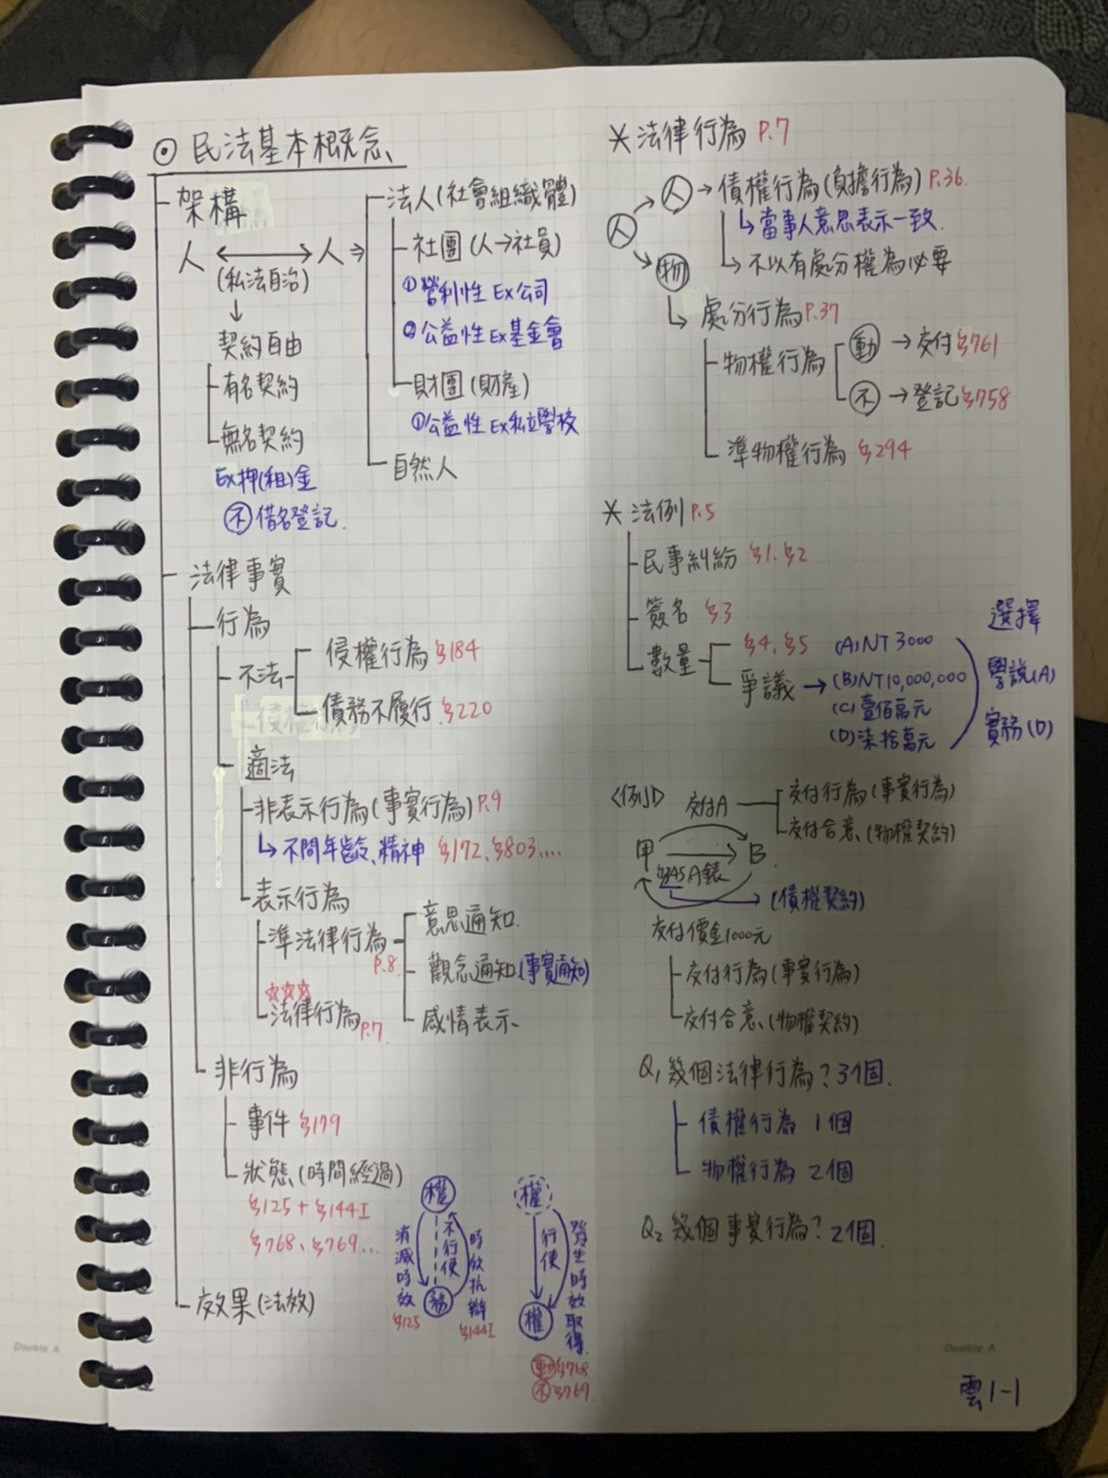 ⊙ 民法基本概念
架構
人 ⟷ 人 ⇒
(私法自治)
↓
契約自由
有名契約
無名契約
Ex押(租)金
不 借名登記
法人(社會組織體)
社團(人→社員)
① 營利性 Ex公司
② 公益性 Ex基金會
財團(財產)
① 公益性 Ex私立學校
自然人
法律事實
行為
不法
侵權行為 §184
債務不履行 §220
適法
非表示行為(事實行為) P.9
↳ 不問年齡、精神 §172、§803....
表示行為
準法律行為 P.8
意思通知
觀念通知(事實通知)
感情表示
☆☆☆
法律行為 P.7
非行為
事件 §179
狀態(時間經過)
§125+§144I
§768、§769...
效果(法效)
權
消滅時效
§125
不行使
時效抗辯
§144I
務
權
行使
發生時效取得
權
動 §768
不 §769
* 法律行為 P.7
人
人 → 債權行為(負擔行為) P.36
↳ 當事人意思表示一致
↳ 不以有處分權為必要
物
↳ 處分行為 P.37
物權行為
動 → 交付 §761
不 → 登記 §758
準物權行為 §294
* 法例 P.5
民事糾紛 §1、§2
簽名 §3
數量
§4、§5
爭議 →
(A) NT 3000
(B) NT 10,000,000
(C) 壹佰萬元
(D) 柒拾萬元
選擇
學說(A)
實務(D)
<例1>
交付A
交付行為(事實行為)
交付合意(物權契約)
甲 → B
§345 A錶
(債權契約)
交付價金1000元
交付行為(事實行為)
交付合意(物權契約)
Q1 幾個法律行為? 3個.
債權行為 1個
物權行為 2個
Q2 幾個事實行為? 2個.
Double A
Double A
雲1-1